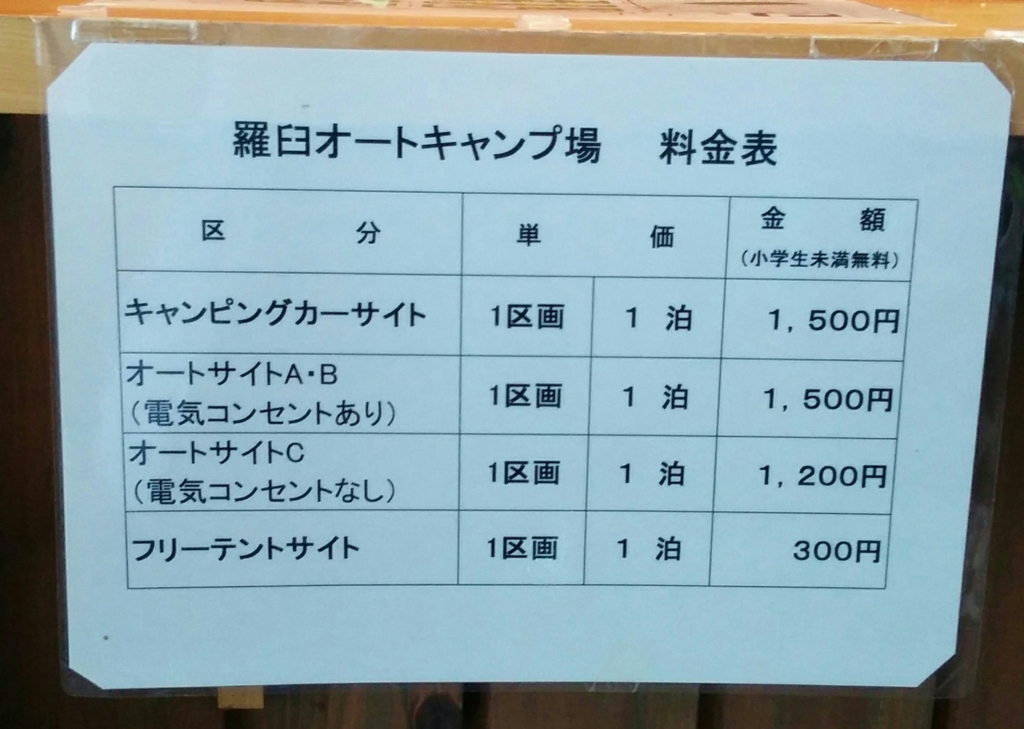 羅臼オートキャンプ場　料金表
区　分　単　価　金　額
（小学生未満無料）
キャンピングカーサイト　1区画　1　泊　1，500円
オートサイトA・B
（電気コンセントあり）　1区画　1　泊　1，500円
オートサイトC
（電気コンセントなし）　1区画　1　泊　1，200円
フリーテントサイト　1区画　1　泊　300円